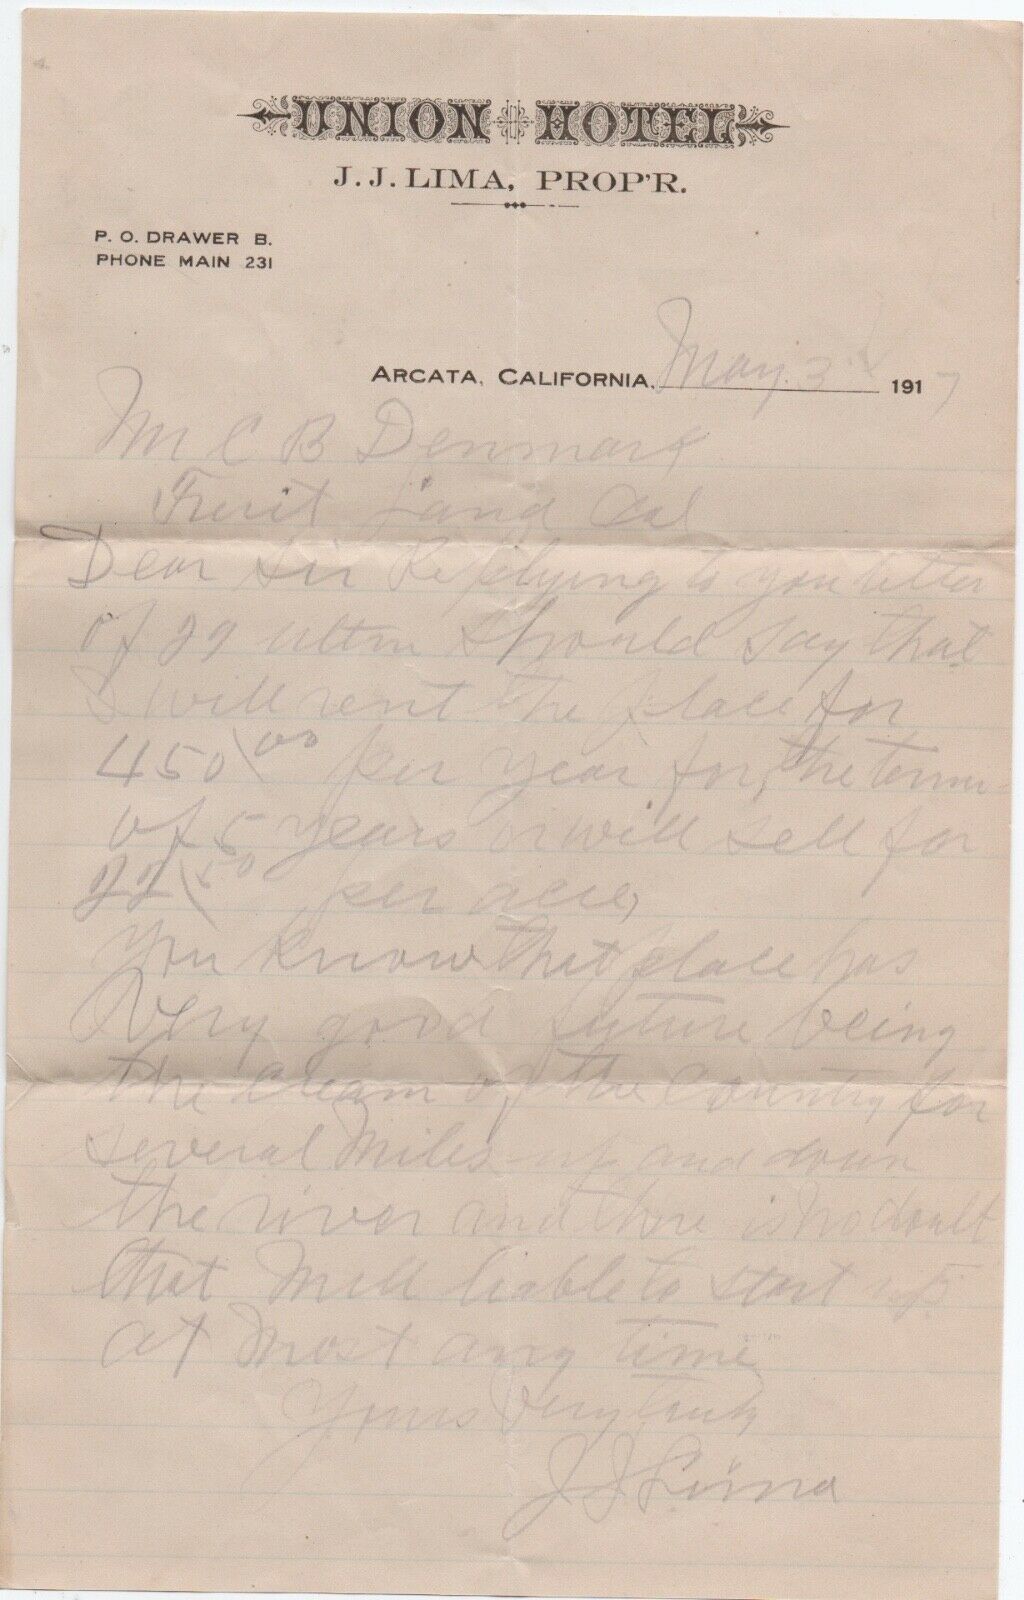 UNION HOTEL
J. J. LIMA, PROP'R.
P. O. DRAWER B.
PHONE MAIN 231
ARCATA, CALIFORNIA, May 3 1917
Mr C B Denmark
Fruit land Cal
Dear Sir Replying to you letter
of 29 ultm should say that
I will rent the place for
450 00 per year for the term
of 5 years or will sell for
22 50 per acre,
You know that place has
Very good future being
the cream of the Country for
several Miles up and down
the river and there is no doubt
that Mill liable to start up
at Most any time
Yours Very truly
J J Lima